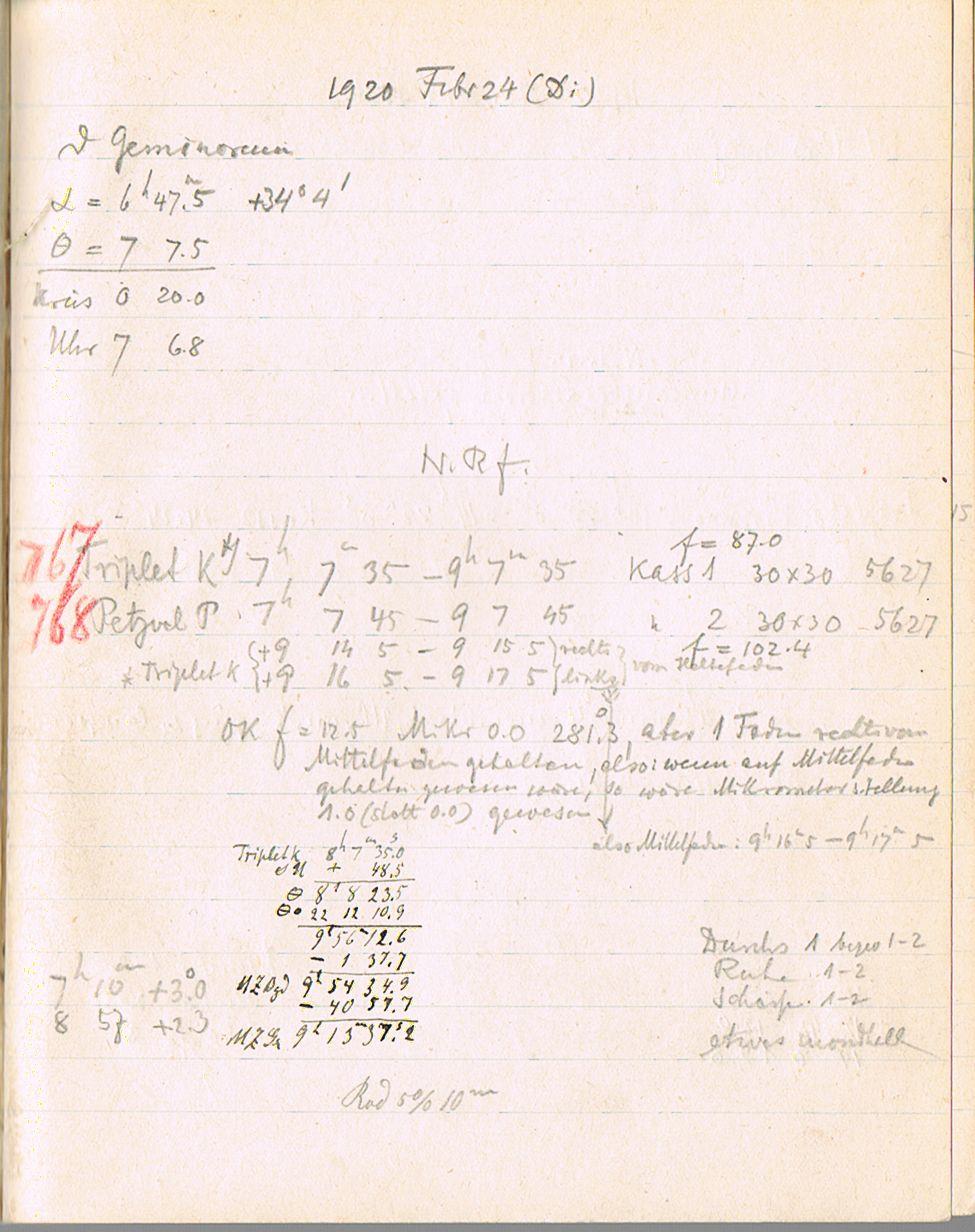 1920 Febr 24 (Di)
ϑ Geminorum
α = 6ʰ 47ᵐ.5 +34° 4'
θ = 7 7.5
Kreis 0 20.0
Uhr 7 6.8
N.R.f.
f = 87.0
767 Triplet K 7ʰ 7ᵐ 35 – 9ʰ 7ᵐ 35 Kass 1 30×30 5627
768 Petzval P 7ʰ 7 45 – 9 7 45 " 2 30×30 5627
f = 102.4
* Triplet K { +9 14 5 – 9 15 5 } rechts
{ +9 16 5 – 9 17 5 } links } vom Mittelfaden
OK f = 12.5 Mikr 0.0 281°.3, aber 1 Faden rechts vom
Mittelfaden gehalten, also: wenn auf Mittelfaden
gehalten gewesen wäre, so wäre Mikrometerstellung
1.0 (statt 0.0) gewesen
also Mittelfaden: 9ʰ 16ᵐ 5 – 9ʰ 17ᵐ 5
Triplet K 8ʰ 7ᵐ 35ˢ.0
+ 48.5
θ 8ʰ 8 23.5
θ₀ 22 12 10.9
9ʰ 56ᵐ 12.6
– 1 37.7
9ʰ 54 34.9
– 40 57.7
9ʰ 13ᵐ 37ˢ.2
7ʰ 10ᵐ +3°.0
8 57 +2.3
Durchs 1 bezw 1-2
Ruhe 1-2
Schärfe 1-2
etwas mondhell
Rad 50% 10ᵐ
15